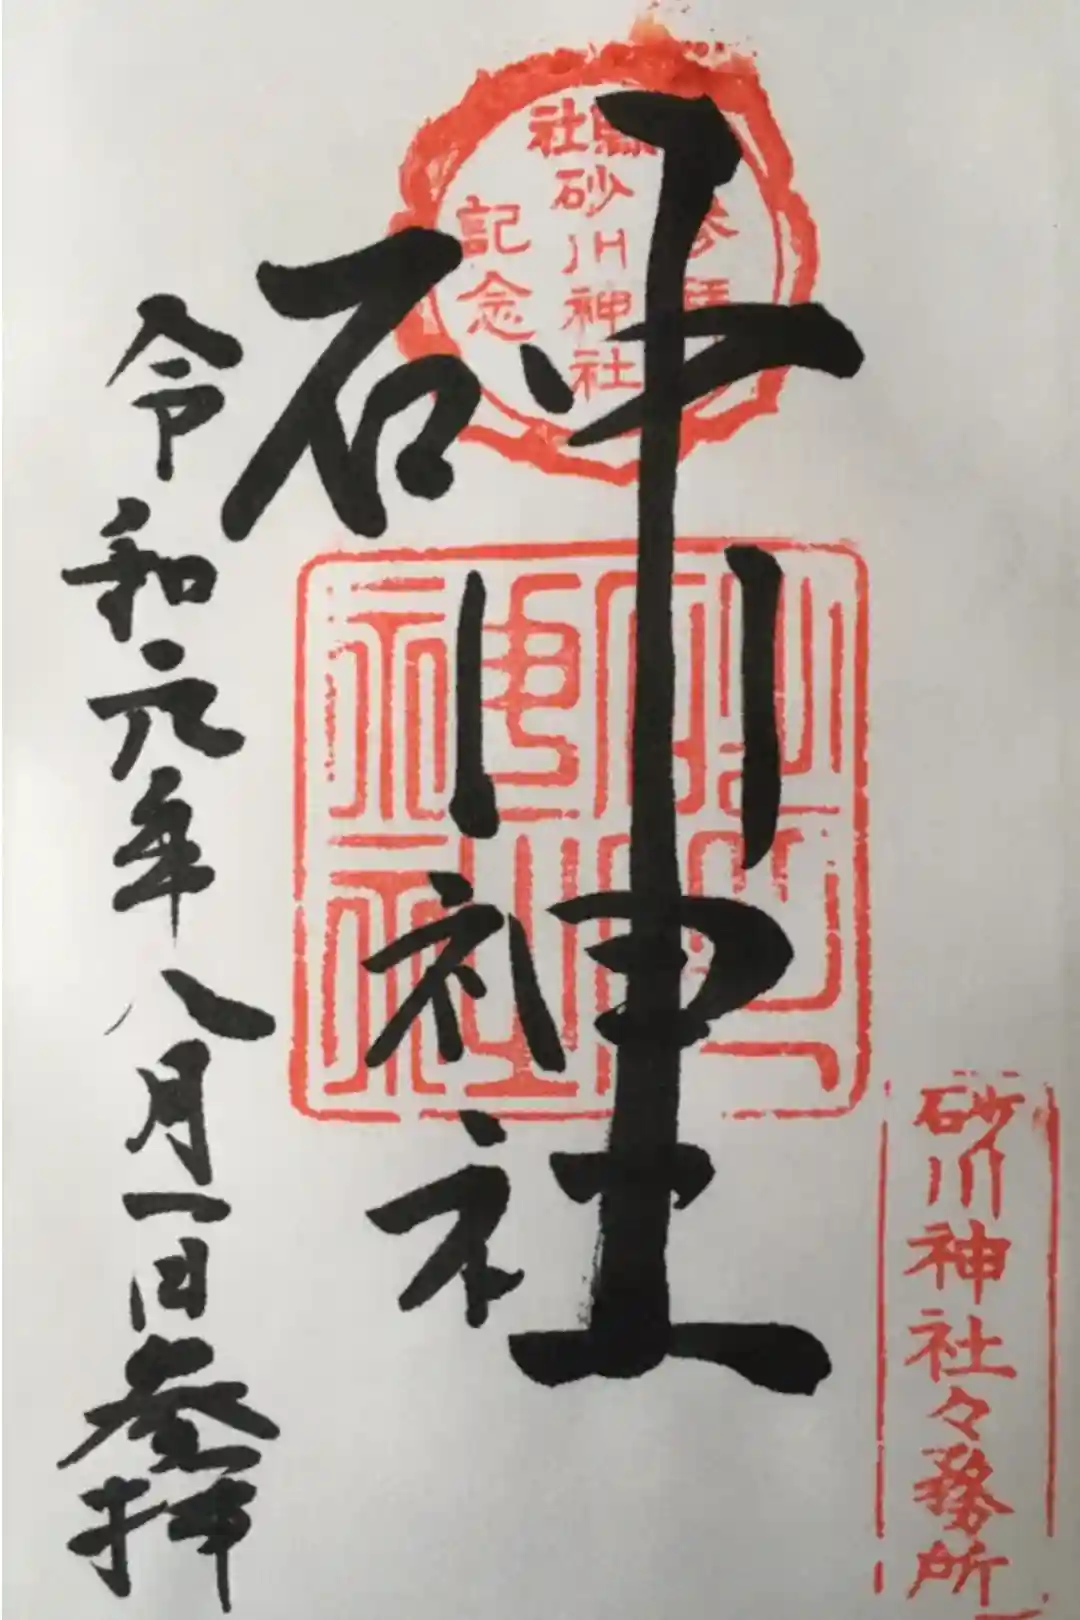 縣社
参拝
砂川神社
記念
砂川神社
砂川神社
令和元年八月一日参拝
砂川神社々務所